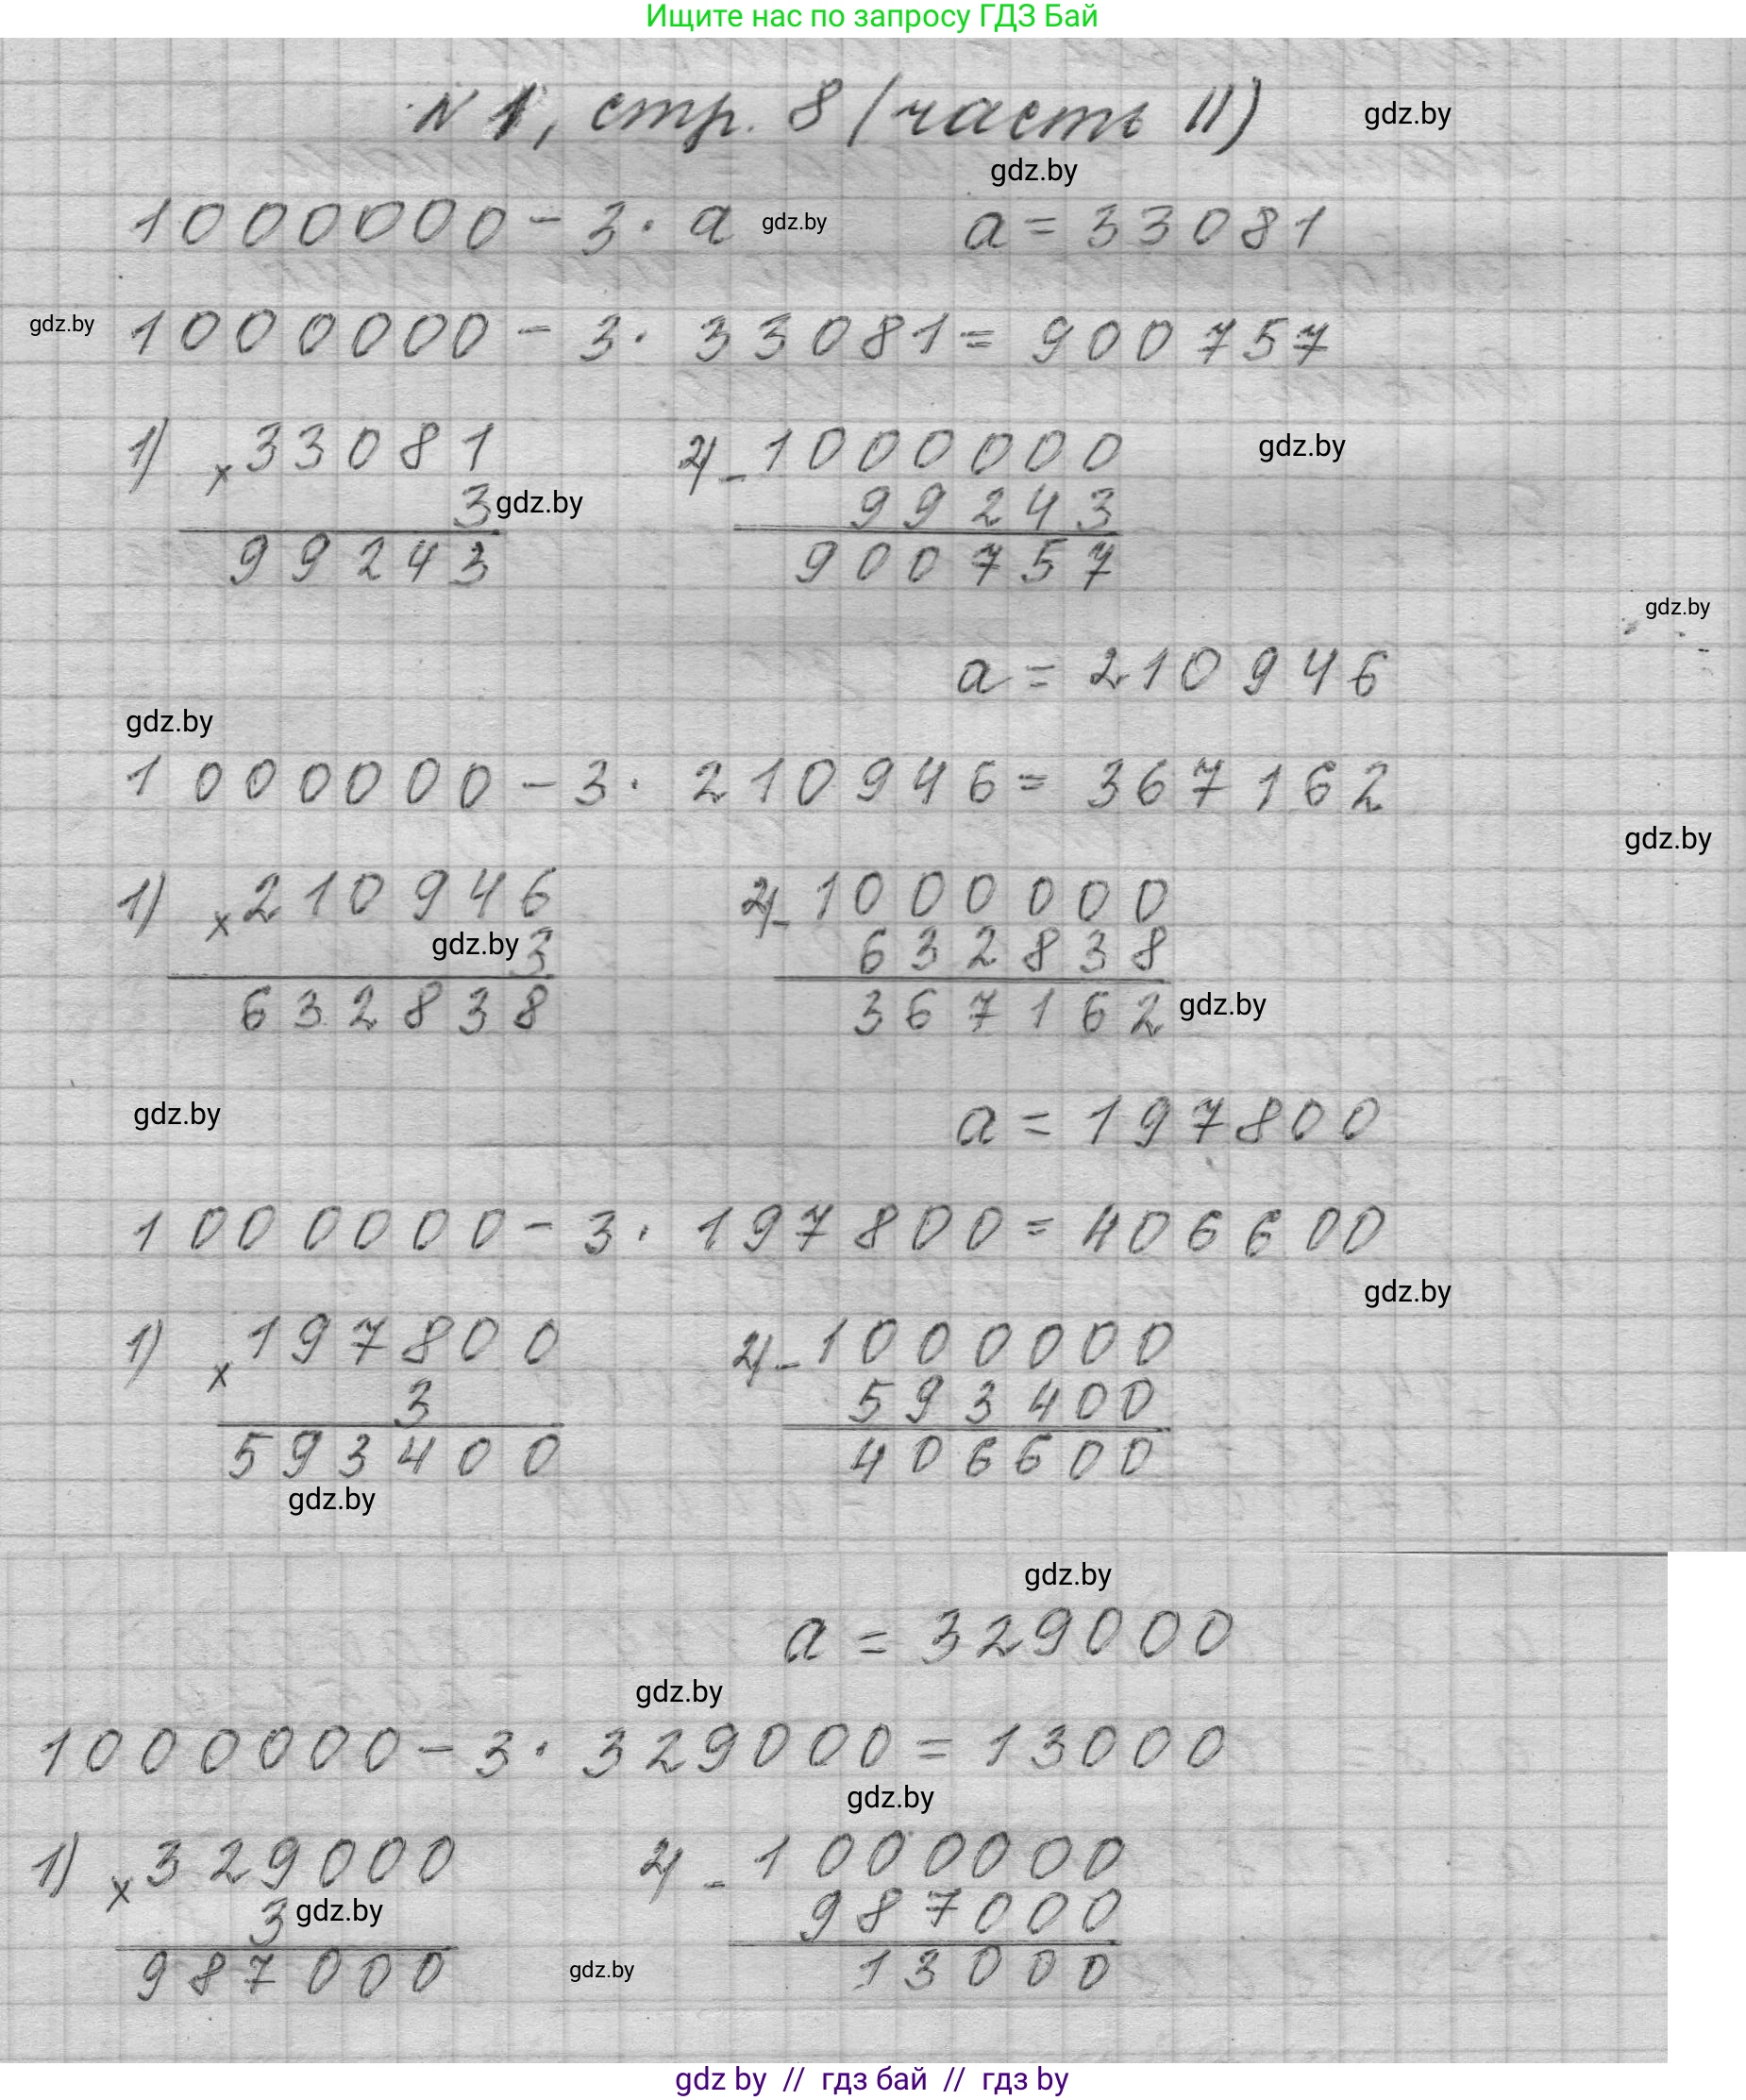 Ищите нас по запросу ГДЗ Бай
N 1, стр. 8 (часть II)
gdz.by
gdz.by
1000000 - 3 · a
gdz.by
a = 33081
gdz.by
1000000 - 3 · 33081 = 900757
1) × 33081
2) - 1000000
gdz.by
3
gdz.by
99243
99243
900757
gdz.by
a = 210946
gdz.by
1000000 - 3 · 210946 = 367162
gdz.by
1) × 210946
2) - 1000000
gdz.by
3
632838
632838
367162
gdz.by
gdz.by
a = 197800
1000000 - 3 · 197800 = 406600
gdz.by
1) × 197800
2) - 1000000
3
593400
593400
406600
gdz.by
gdz.by
a = 329000
gdz.by
1000000 - 3 · 329000 = 13000
gdz.by
1) × 329000
2) - 1000000
3
gdz.by
987000
987000
gdz.by
13000
gdz by // гдз бай // гдз by